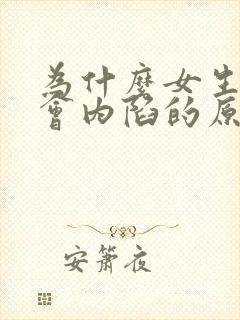 為什麼女生
會內陷的原
安簫夜